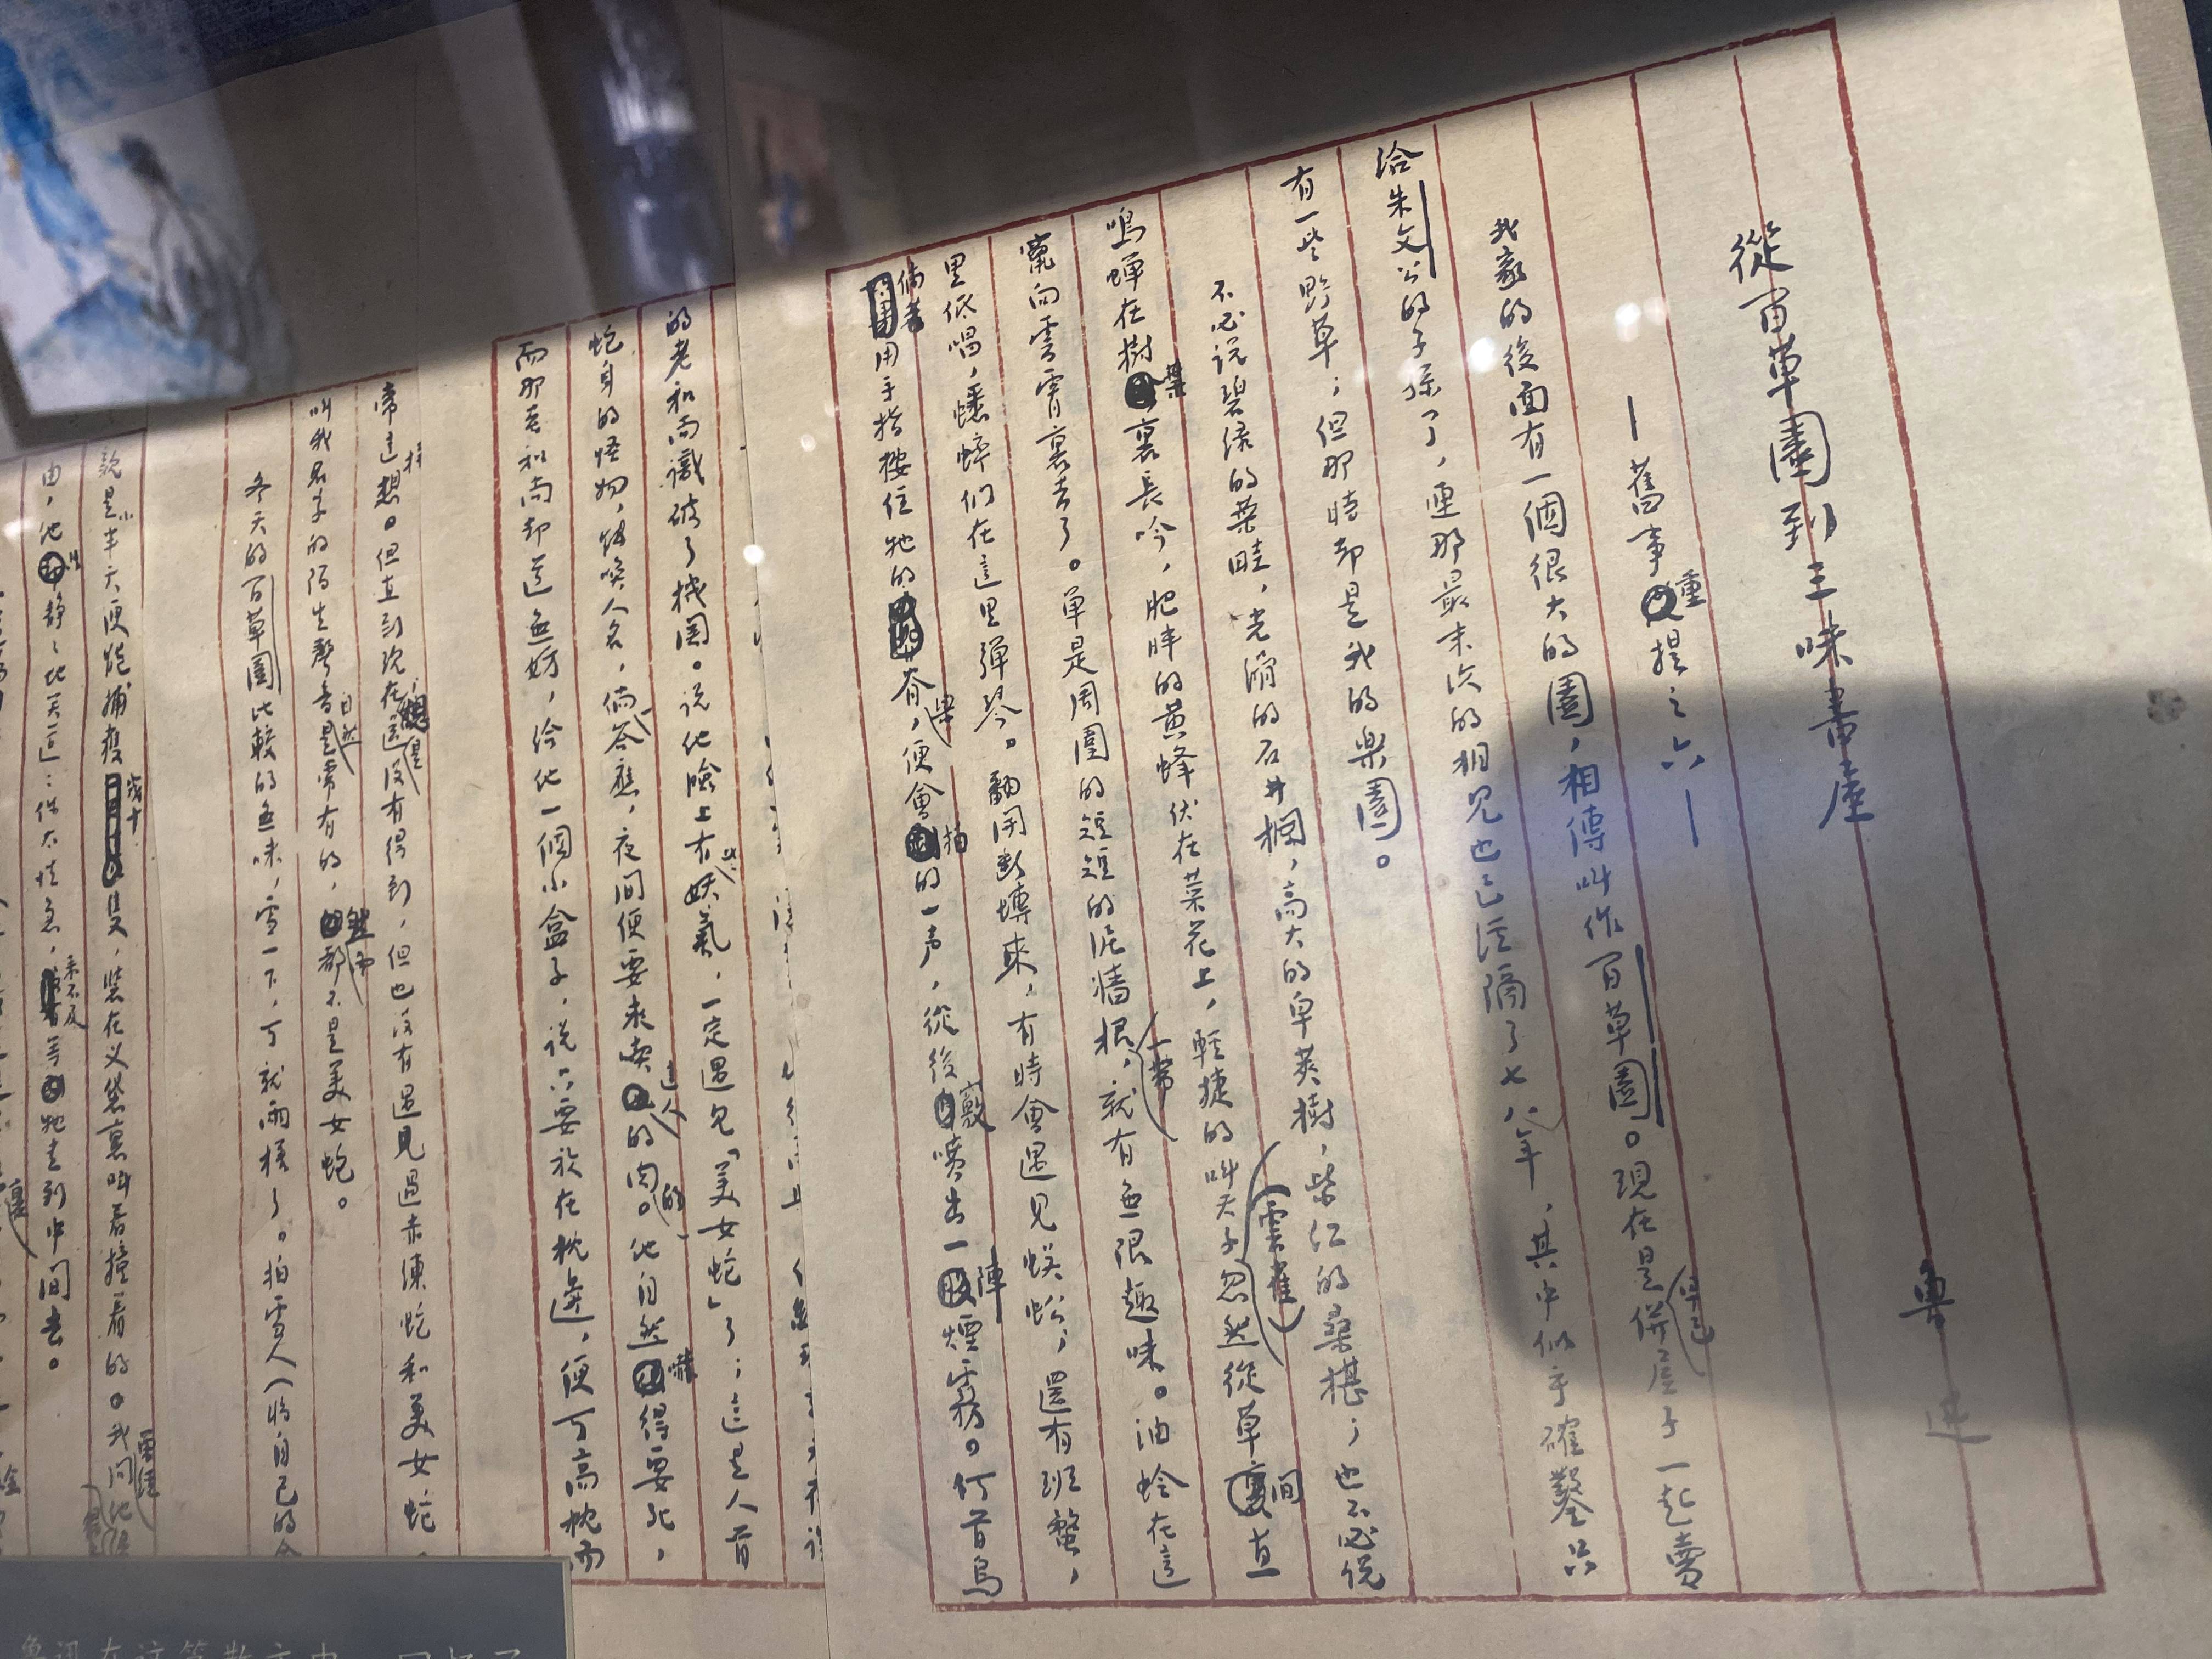 從百草園到三味書屋
——舊事重提之六——
魯迅
我家的後面有一個很大的園，相傳叫作百草園。現在是早已併屋子一起賣
給朱文公的子孫了，連那最末次的相見也已經隔了七八年，其中似乎確鑿只
有一些野草；但那時卻是我的樂園。
不必說碧綠的菜畦，光滑的石井欄，高大的皁莢樹，紫紅的桑椹；也不必說
鳴蟬在樹葉裏長吟，肥胖的黃蜂伏在菜花上，輕捷的叫天子（雲雀）忽然從草間直
竄向雲霄裏去了。單是周圍的短短的泥牆根一帶，就有無限趣味。油蛉在這
里低唱，蟋蟀們在這里彈琴。翻開斷塼來，有時會遇見蜈蚣；還有斑蝥，
倘若用手指按住牠的脊梁，便會拍的一声，從後竅噴出一陣煙霧。何首烏
的老和尚識破了機關。说他臉上有些妖氣，一定遇见「美女蛇」了；這是人首
蛇身的怪物，能喚人名，倘一答應，夜间便要來喫這人的肉的。他自然嚇得要死，
而那老和尚却道無妨，给他一個小盒子，说只要放在枕邊，便可高枕而
常這樣想。但直到现在，總是沒有得到，但也没有遇見過赤練蛇和美女蛇。
叫我名字的陌生聲音自然是常有的，然而都不是美女蛇。
冬天的百草園比較的無味，雪一下，可就兩樣了。拍雪人（將自己的全
說是小半天便能捕獲幾十隻，裝在叉袋裏叫着撞着的。我曾經问他得
由，他只静静地笑道：你太性急，來不及等牠走到中间去。
魯迅在这篇散文中，回忆了